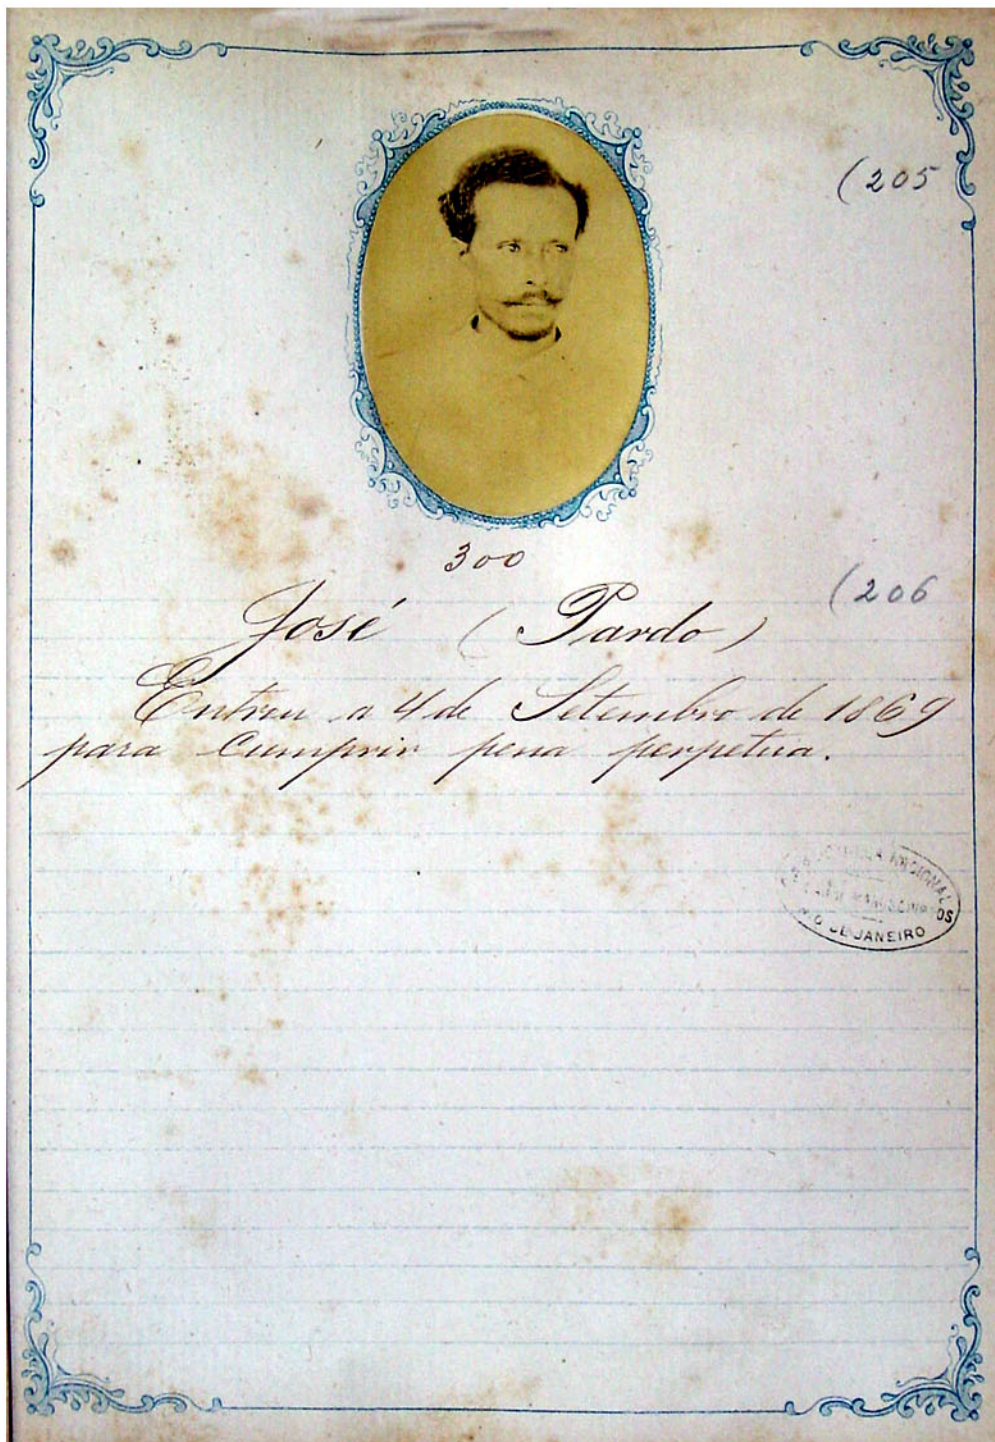 (205
300
(206
José (Pardo)
Entrou a 4 de Setembro de 1869
para cumprir pena perpetua.
NACIONAL
MANUSCRIPTOS
RIO DE JANEIRO